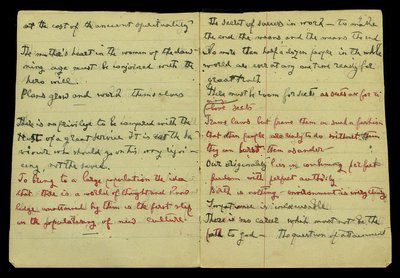 at the cost of the ancient spirituality
The mother's heart in the women of the daw-
ning age must be conjoined with the
hero will.
Plans grow and work themselves
There is no privilege to be compared with the
trust of a great service. It is the
saviour who should go on his way rejoi-
cing, not the saved.
To bring to a large population the idea
that there is a world of thought and know-
ledge unattained by them is the first step
in the popularising of new culture.
The secret of success in work — to make
the end the means and the means the end
No more than half a dozen people in the whole
world are ever at any one time ready for
great truth
There must be room for sects as sects are for
sects
Frame laws but frame them in such a fashion
that when people are ready to do without them
they can burst them asunder
Our originality lies in combining perfect
freedom with perfect authority
Birth is nothing — environment is everything
Impatience is inexcusable
There is no career which must not be the
path to God — The question of attainment